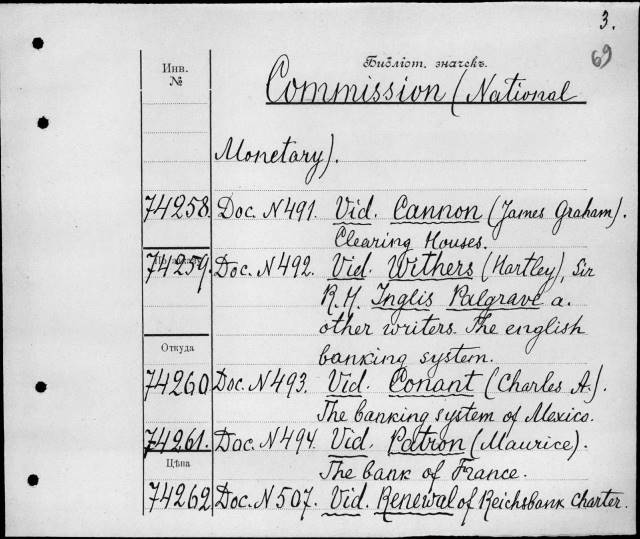 3.
69
Инв.
№
Библіот. значекъ.
Commission (National
Monetary).
74258. Doc. N491. Vid. Cannon (James Graham).
Clearing Houses.
74259. Doc. N492. Vid. Withers (Hartley), Sir
R. H. Inglis Palgrave a.
other writers. The english
banking system.
Откуда
74260 Doc. N493. Vid. Conant (Charles A.).
The banking system of Mexico.
74261. Doc. N494. Vid. Patron (Maurice).
Цѣна
The bank of France.
74262 Doc. N507. Vid. Renewal of Reichsbank Charter.